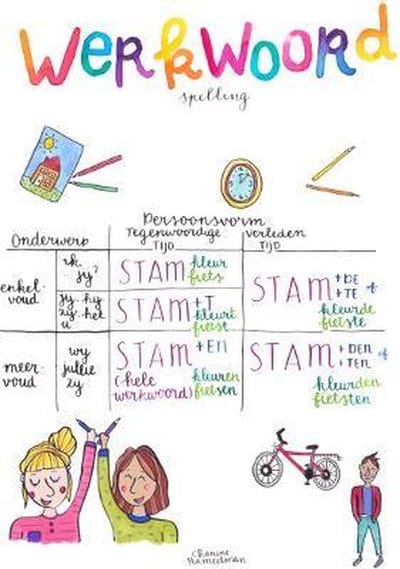 Werkwoord
spelling
Persoonsvorm
Onderwerp
Tegenwoordige TIJD
verleden TIJD
enkel-voud
ik
jy?
STAM
kleur
fiets
STAM +DE of
+TE
kleurde
fietste
jy. hy
zy. het
u
STAM+T
kleurt
fietst
meer-voud
wy
jullie
zy
STAM +EN
(hele werkwoord)
kleuren
fietsen
STAM +DEN of
+TEN
kleurden
fietsten